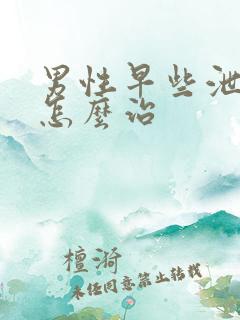 男性早些泄
怎麼治
檀漪
未经同意禁止转载